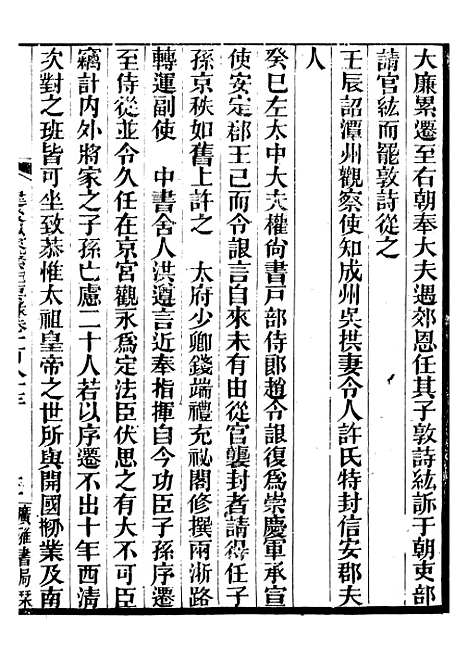 大廉累遷至右朝奉大夫遇郊恩任其子敦詩紘訴于朝吏部
請官紘而罷敦詩從之
壬辰詔潭州觀察使知成州吳拱妻令人許氏特封信安郡夫
人
癸巳左太中大夫權尚書戸部侍郎趙令詪復爲崇慶軍承宣
使安定郡王已而令詪言自來未有由從官襲封者請得任子
孫京秩如舊上許之　太府少卿錢端禮充祕閣修撰兩浙路
轉運副使　中書舍人洪遵言近奉指揮自今功臣子孫序遷
至侍從並令久任在京宮觀永爲定法臣伏思之有大不可臣
竊計內外將家之子孫亡慮二十人若以序遷不出十年西清
次對之班皆可坐致恭惟太祖皇帝之世所與開國刱業及南
廣雅書局栞